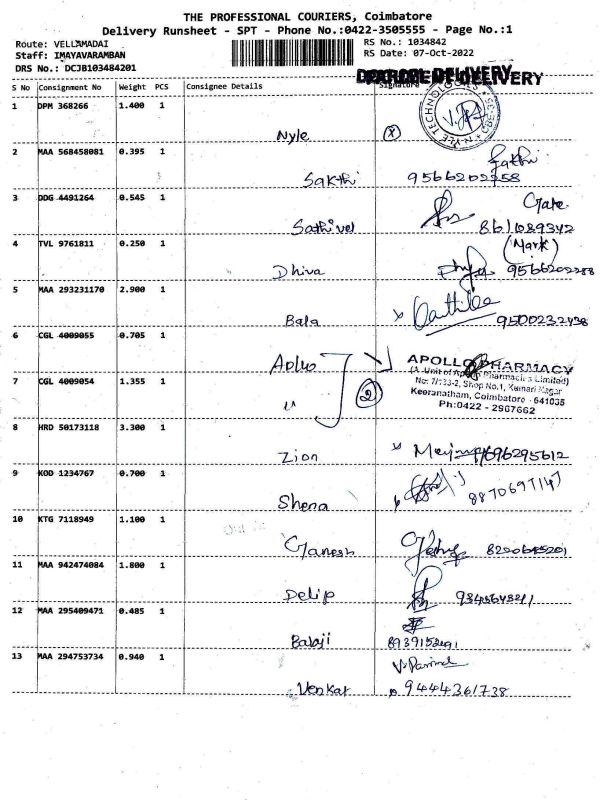 THE PROFESSIONAL COURIERS, Coimbatore
Delivery Runsheet - SPT - Phone No.:0422-3505555 - Page No.:1
Route: VELLAMADAI
Staff: IMAYAVARAMBAN
DRS No.: DCJB103484201
RS No.: 1034842
RS Date: 07-Oct-2022
PARCEL DELIVERY
S No Consignment No Weight PCS Consignee Details Signature
1 DPM 368266 1.400 1
Nyle
NYLE TECHNOLOGIES
2 MAA 568458081 0.395 1
Sakthi Sakthi
9566202258
3 DDG 4491264 0.545 1
Sathivel Gate
861089342
4 TVL 9761811 0.250 1
(Mark)
Dhiva 9566202288
5 MAA 293231170 2.900 1
Bala 9500232438
6 CGL 4009055 0.705 1
Apllo
APOLLO PHARMACY
(A Unit of Apollo Pharmacies Limited)
7 CGL 4009054 1.355 1
" (2)
No: 7/133-2, Shop No.1, Kumari Nagar
Keeranatham, Coimbatore - 641035
Ph:0422 - 2907662
8 HRD 50173118 3.300 1
Zion
9 KOD 1234767 0.700 1
Shena 8870697147
10 KTG 7118949 1.100 1
Ganesh Ganesh 8220645201
11 MAA 942474084 1.800 1
Delip
12 MAA 295409471 0.485 1
Balaji 8939153491
13 MAA 294753734 0.940 1
Venkat 9444361738